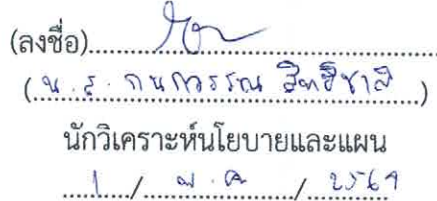 (ลงชื่อ)
(น.ส. กนกวรรณ สิทธิชาติ)
นักวิเคราะห์นโยบายและแผน
1 / พ.ค. / 2567